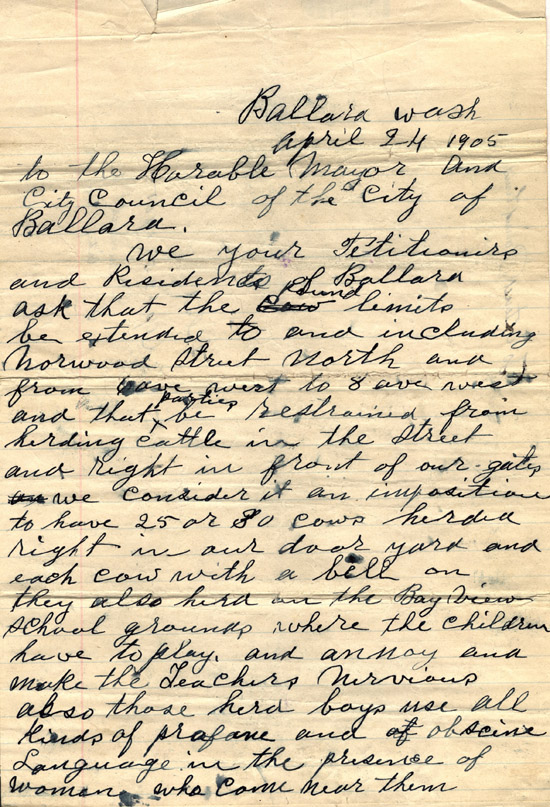 Ballard Wash
April 24 1905
to the Horable Mayor and
City Council of the City of
Ballard.
We your Petitionirs
and Risidents of Ballard
ask that the Cow Pound limits
be extended to and including
Norwood Street North and
from ave west to 8 ave west
and that parties be restrained from
herding Cattle in the Street
and right in front of our gates
we consider it an imposition
to have 25 or 30 cows herded
right in our door yard and
each cow with a bell on
they also herd on the Bay View
School grounds where the children
have to play. and annoy and
make the Teachers Nervious
also those herd boys use all
kinds of profane and of obscine
Language in the prisence of
women who come near them